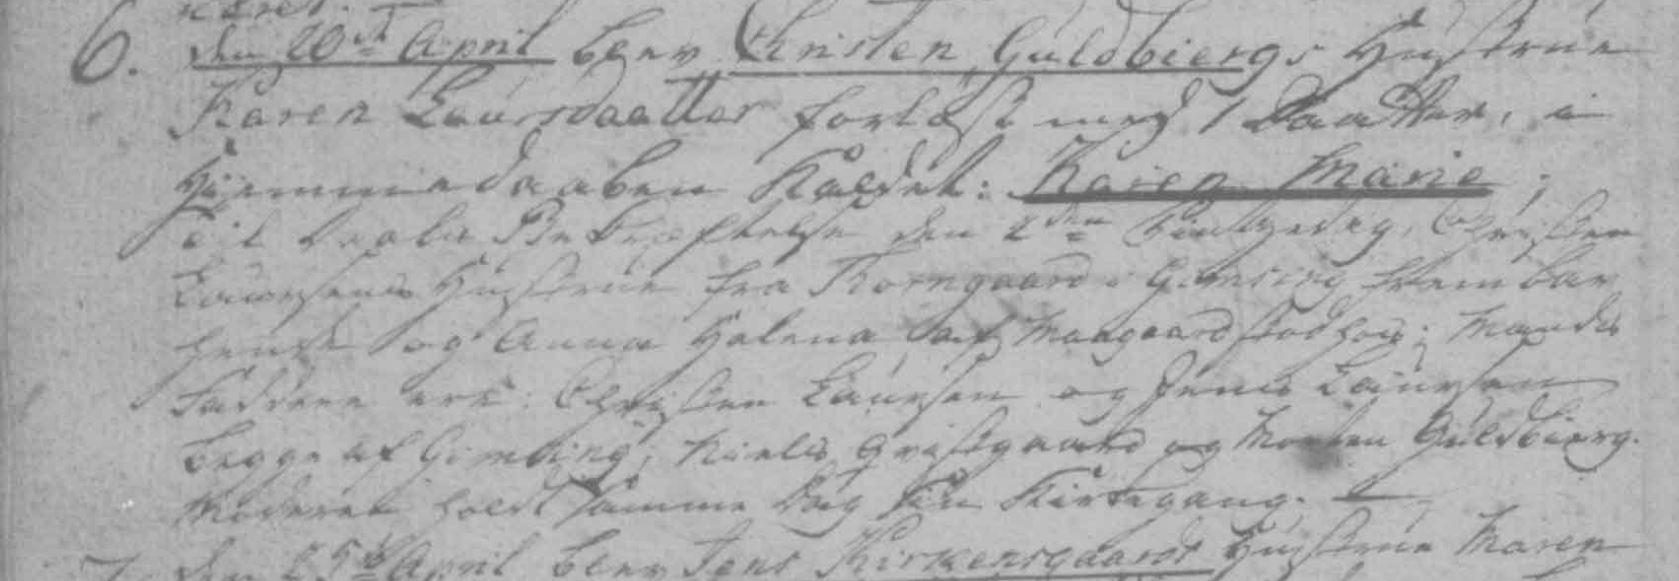 6. den 20de April blev Christen Guldbiergs Hustrue
Karen Laursdaatter forløst med 1 Daatter, i
Hiemmedaaben kaldet: Karen Marie;
Til Daabs Bekræftelse den 2den Pintzedag. Christen
Laursens Hustrue fra Korngaard i Gimsing frembar
hende og Anna Helena af Maagaard stod hos; Mands
Faddere ere: Christen Laursen og Jens Laursen
begge af Gimsing, Niels Qvistgaard og Morten Guldbierg.
Moderen holdt samme Dag sin Kirkegang.
7. den 25de April blev Jens Kirkensgaards Hustrue Maren